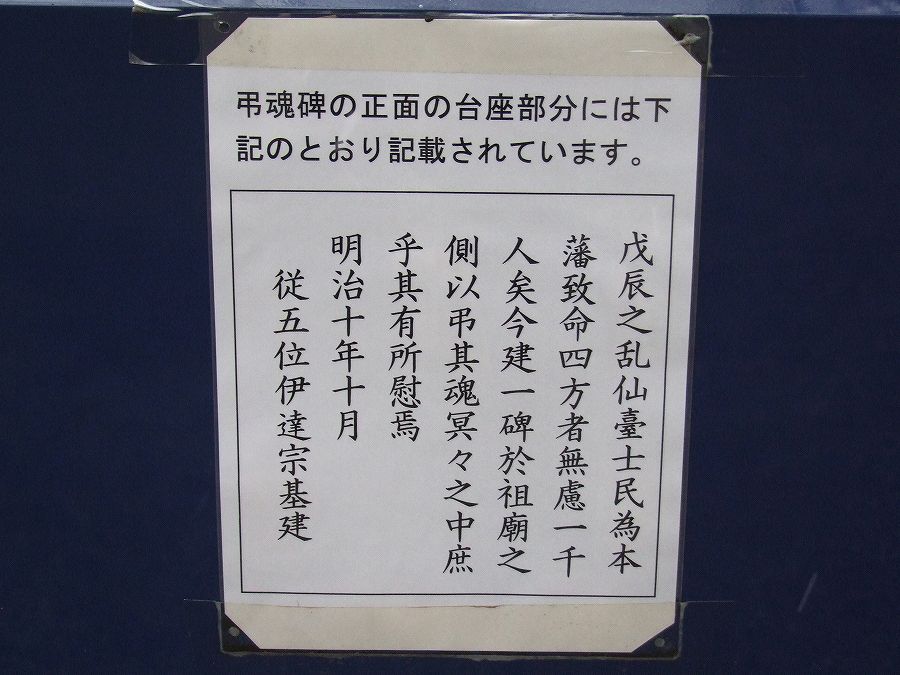 弔魂碑の正面の台座部分には下
記のとおり記載されています。
戊辰之乱仙臺士民為本
藩致命四方者無慮一千
人矣今建一碑於祖廟之
側以弔其魂冥々之中庶
乎其有所慰焉
明治十年十月
従五位伊達宗基建